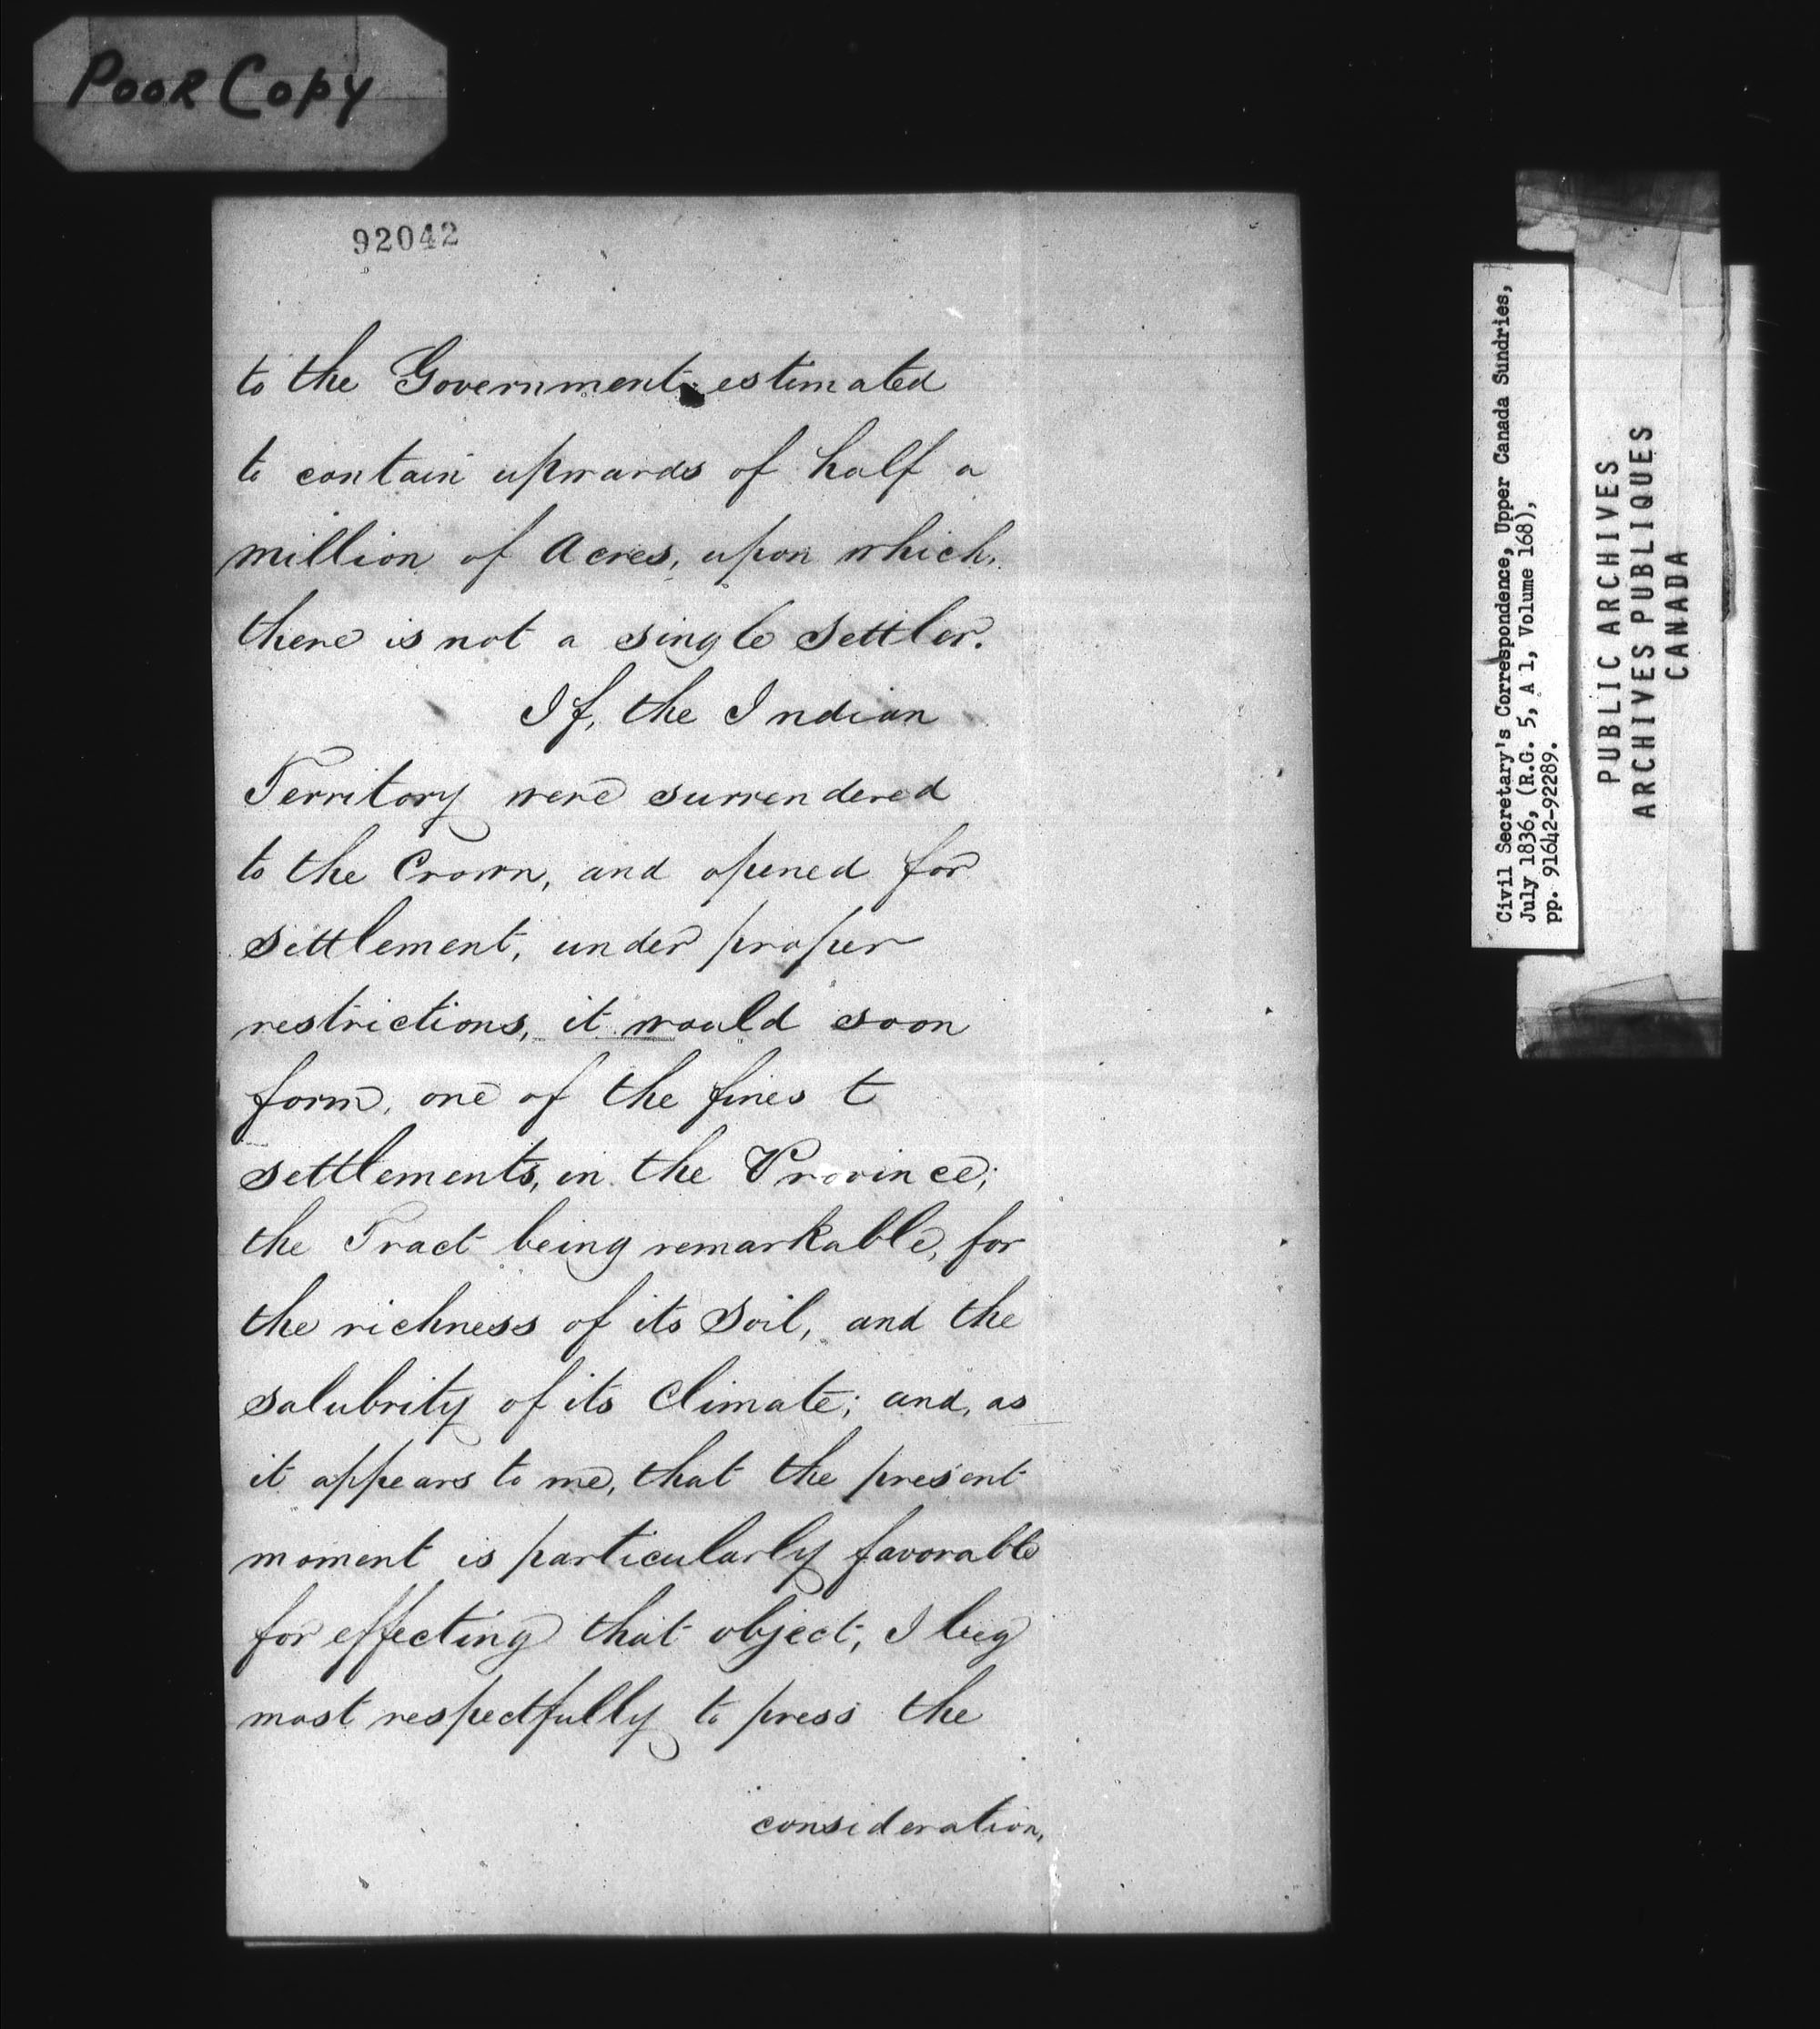 Poor Copy
92042
to the Government estimated
to contain upwards of half a
million of Acres, upon which,
there is not a single Settler.
If, the Indian
Territory were surrendered
to the Crown, and opened for
settlement, under proper
restrictions, it would soon
form, one of the finest
settlements, in the Province;
the Tract being remarkable, for
the richness of its Soil, and the
salubrity of its Climate; and, as
it appears to me, that the present
moment is particularly favorable
for effecting that object, I beg
most respectfully to press the
consideration,
Civil Secretary's Correspondence, Upper Canada Sundries,
July 1836, (R.G. 5, A 1, Volume 168),
pp. 91642-92289.
PUBLIC ARCHIVES
ARCHIVES PUBLIQUES
CANADA